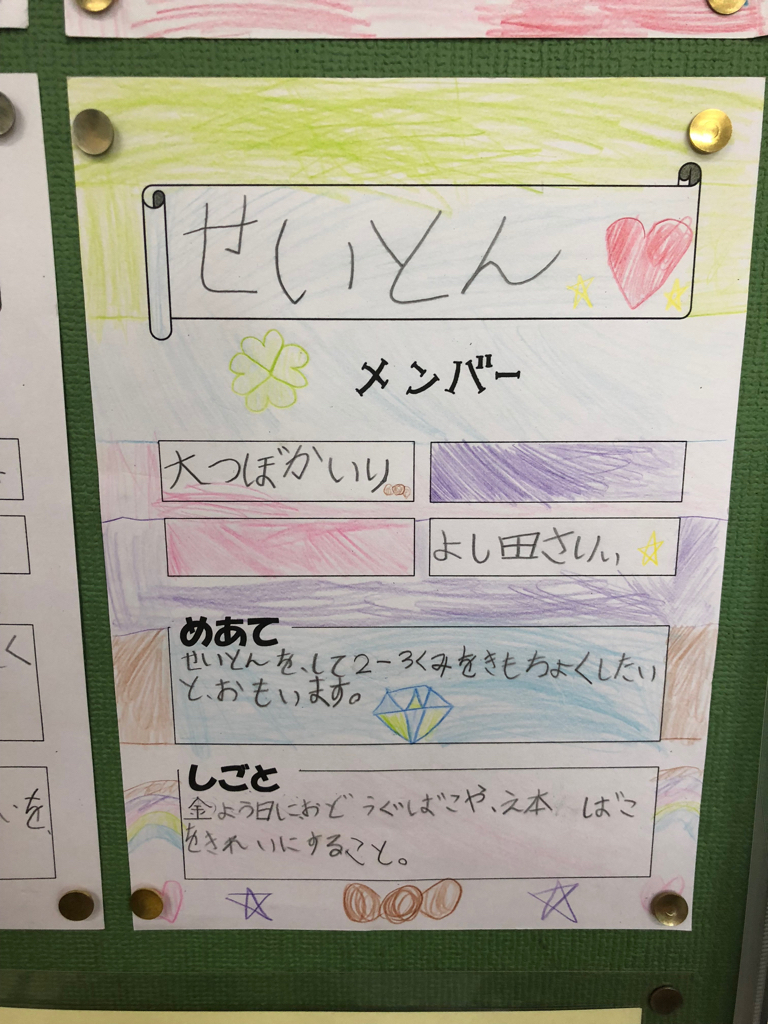 せいとん
メンバー
大つぼかいり
よし田さりぃ
めあて
せいとんを、して2-3くみをきもちよくしたい
と、おもいます。
しごと
金よう日におどうぐばこや、え本 ばこ
をきれいにすること。
く
を、